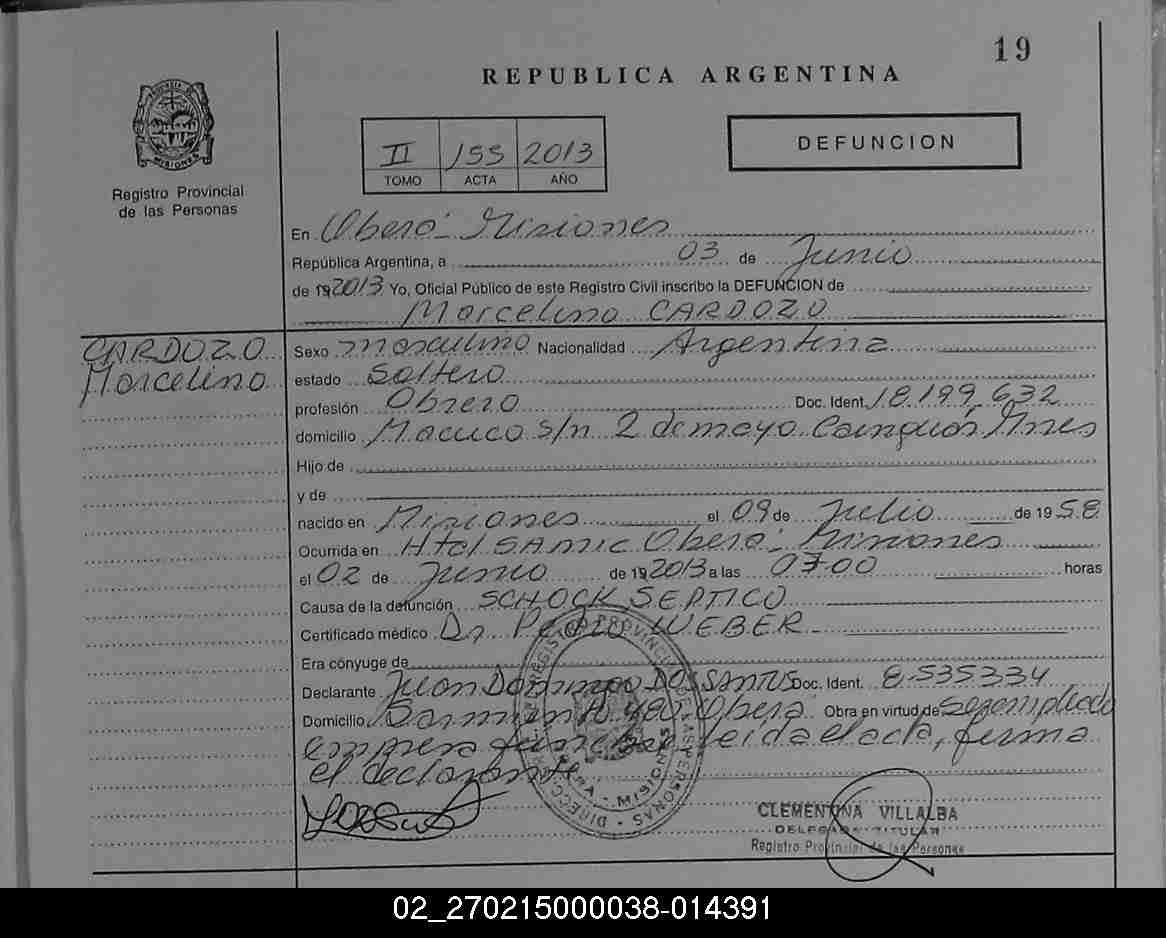 19
REPUBLICA ARGENTINA
DEFUNCION
II 155 2013
TOMO ACTA AÑO
Registro Provincial
de las Personas
En Oberá - Misiones
República Argentina, a 03 de Junio
de 192013 Yo, Oficial Público de este Registro Civil inscribo la DEFUNCION de
Marcelino CARDOZO
CARDOZO
Marcelino
Sexo masculino Nacionalidad Argentina
estado Soltero
profesión Obrero Doc. Ident. 18.199.632
domicilio Macuco s/n 2 de mayo Cainguás Mnes
Hijo de
y de
nacido en Misiones el 09 de Julio de 1958
Ocurrida en Htal SAMIC Oberá - Misiones
el 02 de Junio de 192013 a las 07:00 horas
Causa de la defunción SCHOCK SEPTICO
Certificado médico Dr. Pedro WEBER
Era cónyuge de
Declarante Juan Domingo DOS SANTOS Doc. Ident. 8.535.334
Domicilio Sarmiento 480 Oberá Obra en virtud de ser empleado
empresa funebre leida el acta, firma
el declarante
CLEMENTINA VILLALBA
DELEGADA TITULAR
Registro Provincial de las Personas
02_270215000038-014391